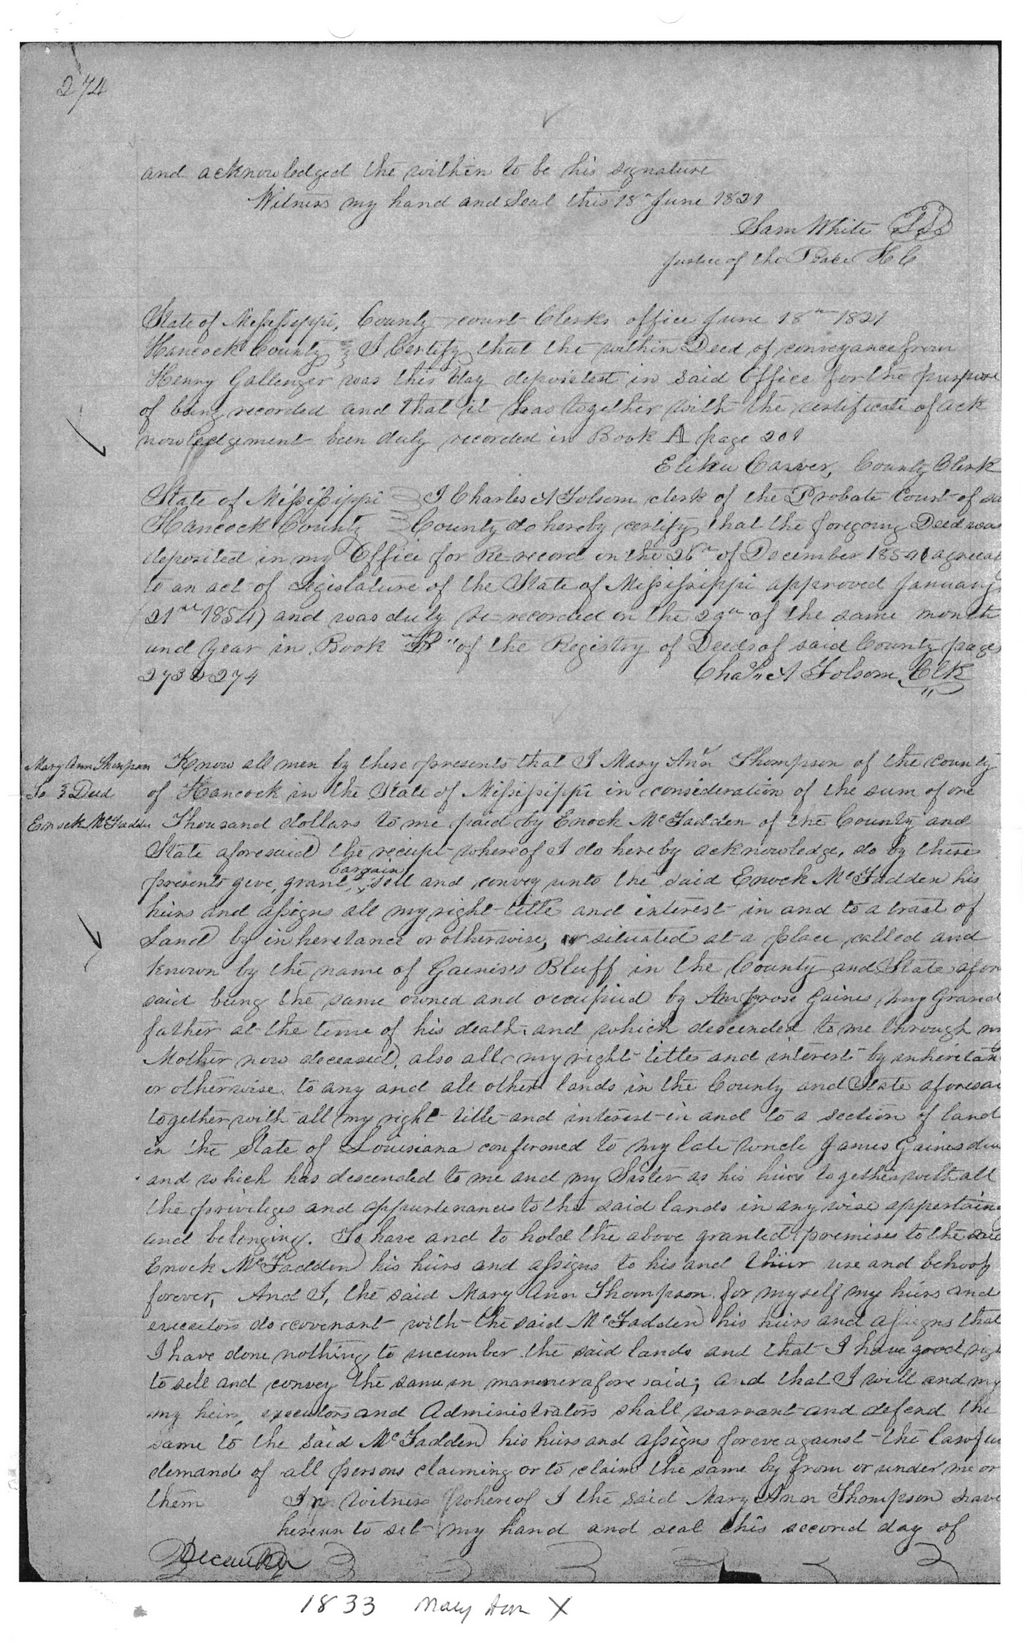 274
and acknowledged the within to be his signature
Witness my hand and Seal this 18th June 1821
Sam White
Justice of the Peace H C
State of Mississippi, County court Clerks office June 18th 1821
Hancock County I Certify that the within Deed of conveyance from
Henry Gallenger was this day deposited in said Office for the purpose
of being recorded and that it has together with the certificate of ack
nowledgement been duly recorded in Book A page 201
Eliku Carver, County Clerk
State of Mississippi I Charles A Folsom clerk of the Probate Court of
Hancock County County do hereby certify that the foregoing Deed was
deposited in my Office for Re record on the 26th of December 1854
to an act of Legislature of the State of Mississippi approved January
(21st 1854) and was duly re-recorded on the 29th of the same month
and year in Book "B" of the Registry of Deeds of said County pages
273 & 274 Chas A Folsom Clk
Mary Ann Thompson Know all men by these presents that I Mary Ann Thompson of the County
To Deed of Hancock in the State of Mississippi in consideration of the sum of one
Enock McFadden Thousand dollars to me paid by Enock McFadden of the County and
State aforesaid the receipt whereof I do hereby acknowledge, do by these
bargain
presents give, grant, sell and convey unto the said Enock McFadden his
heirs and assigns all my right title and interest in and to a tract of
Land by inheretance or otherwise, situated at a place called and
known by the name of Gaines's Bluff in the County and State afore
said being the same owned and occupied by Ambrose Gaines my Grand
father at the time of his death and which descended to me through
Mother now deceased, also all my right title and interest by
or otherwise to any and all other lands in the County and State
together with all my right title and interest in and to a section of land
in the State of Louisiana confirmed to my late uncle James Gaines
and which has descended to me and my Sister as his heirs together with all
the privileges and appurtenances to the said lands in any wise
and belonging. To have and to hold the above granted premises to the said
Enock McFadden his heirs and assigns to his and their use and behoof
forever, And I, the said Mary Ann Thompson for myself my heirs and
executors do covenant with the said McFadden his heirs and assigns that
I have done nothing to incumber the said lands and that I have good
to sell and convey the same in manner aforesaid; and that I will and my
my heirs, executors and Administrators shall warrant and defend the
same to the said McFadden his heirs and assigns foreve against the
demands of all persons claiming or to claim the same by from or under me or
them In witness whereof I the said Mary Ann Thompson have
hereunto set my hand and seal this second day of
December
1833 Mary Ann X